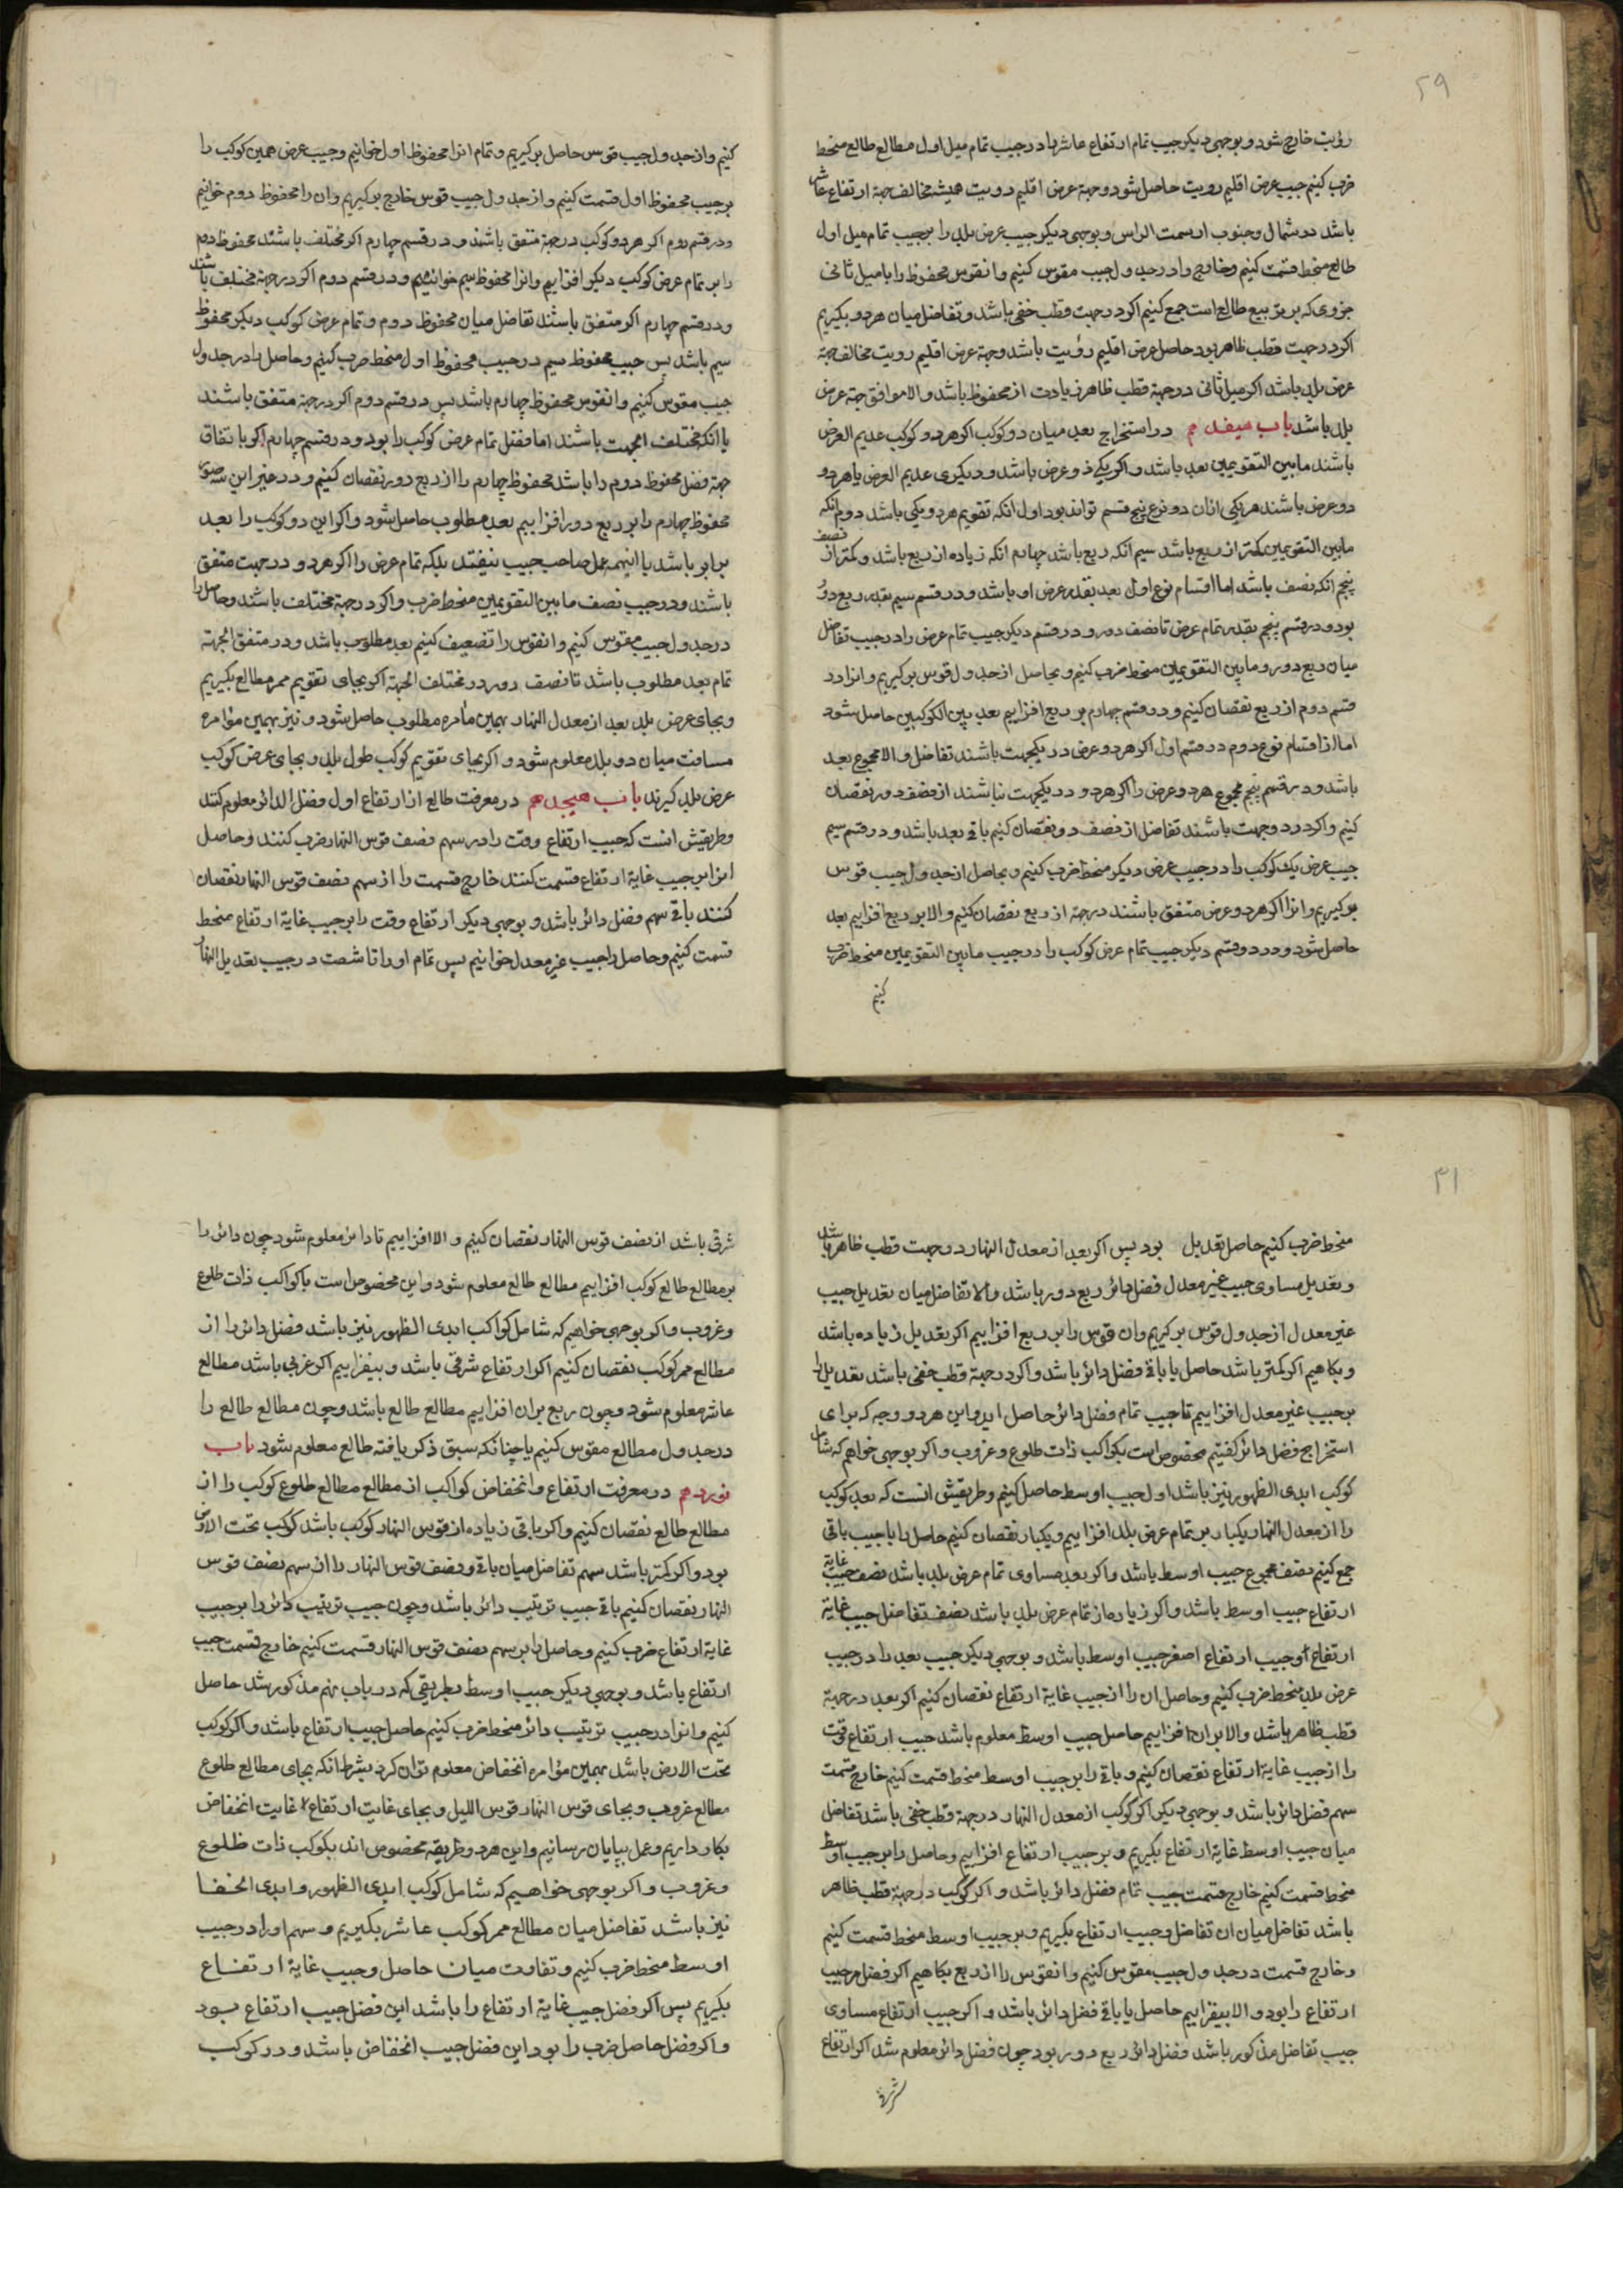 ۲۹
رؤیت خارج شود و بوجهی دیکر جیب تمام ارتفاع عاشر را در جیب تمام میل اول مطالع طالع منحط
ضرب کنیم جیب عرض اقلیم رویت حاصل شود وجهة عرض اقلیم رویت همیشه مخالف جهة ارتفاع عاشر
باشد در شمال و جنوب از سمت الراس و بوجهی دیکر جیب عرض بلد را بر جیب تمام میل اول
طالع منحط قسمت کنیم و خارج را در جدول جیب مقوس کنیم و انقوس محفوظ را با میل ثانی
جزوی که بر تربیع طالع است جمع کنیم اکر در جهت قطب خفی باشد و تفاضل میان هر دو بکیریم
اکر در جهت قطب ظاهر بود حاصل عرض اقلیم رؤیت باشد وجهة عرض اقلیم رویت مخالف جهة
عرض بلد باشد اکر میل ثانی در جهة قطب ظاهر زیادت از محفوظ باشد و الا موافق جهة عرض
بلد باشد باب هیفدهم در استخراج بعد میان دو کوکب اکر هر دو کوکب عدیم العرض
باشند ما بین التقویمین بعد باشد و اکر یکی ذو عرض باشد و دیکری عدیم العرض یا هر دو
ذو عرض باشند هر یکی ازان دو نوع پنج قسم تواند بود اول انکه تقویم هر دو یکی باشد دوم انکه
ما بین التقویمین کمتر از ربع باشد سیم انکه ربع باشد چهارم انکه زیاده از ربع باشد و کمتر از نصف
پنجم انکه نصف باشد اما اقسام نوع اول بعد بقدر عرض او باشد و در قسم سیم بقدر ربع دور
بود و در قسم پنجم بقدر تمام عرض تا نصف دور و در قسم دیکر جیب تمام عرض را در جیب تفاضل
میان ربع دور و ما بین التقویمین منحط ضرب کنیم و بحاصل از جدول قوس بر کیریم و انرا در
قسم دوم از ربع نقصان کنیم و در قسم چهارم بر ربع افزاییم بعد بین الکوکبین حاصل شود
اما از اقسام نوع دوم در قسم اول اکر هر دو عرض در یکجهت باشند تفاضل و الا مجموع بعد
باشد و در قسم پنجم مجموع هر دو عرض را اکر هر دو در یکجهت باشند از نصف دور نقصان
کنیم و اکر در دو جهت باشند تفاضل از نصف دور نقصان کنیم باقی بعد باشد و در قسم سیم
جیب عرض یک کوکب را در جیب عرض دیکر منحط ضرب کنیم و بحاصل از جدول جیب قوس
بر کیریم و انرا اکر هر دو عرض متفق باشند در جهة از ربع نقصان کنیم و الا بر ربع افزاییم بعد
حاصل شود و در دو قسم دیکر جیب تمام عرض کوکب را در جیب ما بین التقویمین منحط ضرب
کنیم
کنیم و از جدول جیب قوس حاصل بر کیریم و تمام انرا محفوظ اول خوانیم و جیب عرض همین کوکب را
بر جیب محفوظ اول قسمت کنیم و از جدول جیب قوس خارج بر کیریم و ان را محفوظ دوم خوانیم
و در قسم دوم اکر هر دو کوکب در جهة متفق باشند و در قسم چهارم اکر مختلف باشند محفوظ دوم
را بر تمام عرض کوکب دیکر افزاییم و انرا محفوظ سیم خوانیم و در قسم دوم اکر در جهة مختلف باشند
و در قسم چهارم اکر متفق باشند تفاضل میان محفوظ دوم و تمام عرض کوکب دیکر محفوظ
سیم باشد پس جیب محفوظ سیم در جیب محفوظ اول منحط ضرب کنیم و حاصل را در جدول
جیب مقوس کنیم و انقوس محفوظ چهارم باشد پس در قسم دوم اکر در جهة متفق باشند
یا انکه مختلف الجهت باشند اما فضل تمام عرض کوکب را بود و در قسم چهارم اکر با تفاق
جهة فضل محفوظ دوم را باشد محفوظ چهارم را از ربع دور نقصان کنیم و در غیر این سه صورت
محفوظ چهارم را بر ربع دور افزاییم بعد مطلوب حاصل شود و اکر این دو کوکب را بعد
برابر باشد با اینهمه عمل صاحب جیب نیفتد بلکه تمام عرض را اکر هر دو در جهت متفق
باشند و در جیب نصف ما بین التقویمین منحط ضرب و اکر در جهة مختلف باشند و حاصل را
در جدول جیب مقوس کنیم و انقوس را تضعیف کنیم بعد مطلوب باشد و در متفق الجهة
تمام بعد مطلوب باشد تا نصف دور در مختلف الجهة اکر بجای تقویم ممر مطالع بکیریم
و بجای عرض بلد بعد از معدل النهار بهمین مامره مطلوب حاصل شود و نیز بهمین مؤامره
مسافت میان دو بلد معلوم شود و اکر بجای تقویم کوکب طول بلد و بجای عرض کوکب
عرض بلد کیرند باب هیجدهم در معرفت طالع از ارتفاع اول فضل الدائر معلوم کنند
و طریقش انست که جیب ارتفاع وقت را در سهم نصف قوس النهار ضرب کنند و حاصل
انرا بر جیب غایة ارتفاع قسمت کنند خارج قسمت را از سهم نصف قوس النهار نقصان
کنند باقی سهم فضل دائر باشد و بوجهی دیکر ارتفاع وقت را بر جیب غایة ارتفاع منحط
قسمت کنیم و حاصل را جیب غیر معدل خوانیم پس تمام او را تا شصت در جیب تعدیل النهار
۳۱
منحط ضرب کنیم حاصل تعدیل بود پس اکر بعد از معدل النهار در جهت قطب ظاهر باشد
و تعدیل مساوی جیب غیر معدل فضل دائر ربع دور باشد و الا تفاضل میان تعدیل جیب
غیر معدل از جدول قوس بر کیریم وان قوس را بر ربع افزاییم اکر تعدیل زیاده باشد
و بکاهیم اکر کمتر باشد حاصل یا باقی فضل دائر باشد و اکر در جهة قطب خفی باشد تعدیل را
بر جیب غیر معدل افزاییم تا جیب تمام فضل دائر حاصل اید و این هر دو وجه که برای
استخراج فضل دائر کفتیم مخصوص است بکواکب ذات طلوع و غروب و اکر بوجهی خواهم که شامل
کوکب ابدی الظهور نیز باشد اول جیب اوسط حاصل کنیم و طریقش انست که بعد کوکب
را از معدل النهار یکبار بر تمام عرض بلد افزاییم و یکبار نقصان کنیم حاصل را با جیب باقی
جمع کنیم نصف مجموع جیب اوسط باشد و اکر بعد مساوی تمام عرض بلد باشد نصف جیب غایة
ارتفاع جیب اوسط باشد و اکر زیاده از تمام عرض بلد باشد نصف تفاضل جیب غایة
ارتفاع و جیب ارتفاع اصغر جیب اوسط باشد و بوجهی دیکر جیب بعد را در جیب
عرض بلد منحط ضرب کنیم و حاصل ان را از جیب غایة ارتفاع نقصان کنیم اکر بعد در جهة
قطب ظاهر باشد و الا بران افزاییم حاصل جیب اوسط معلوم باشد جیب ارتفاع وقت
را از جیب غایة ارتفاع نقصان کنیم و باقی را بر جیب اوسط منحط قسمت کنیم خارج قسمت
سهم فضل دائر باشد و بوجهی دیکر اکر کوکب از معدل النهار در جهة قطب خفی باشد تفاضل
میان جیب اوسط غایة ارتفاع بکیریم و بر جیب ارتفاع افزاییم و حاصل را بر جیب اوسط
منحط قسمت کنیم خارج قسمت جیب تمام فضل دائر باشد و اکر کوکب در جهة قطب ظاهر
باشد تفاضل میان ان تفاضل و جیب ارتفاع بکیریم و بر جیب اوسط منحط قسمت کنیم
و خارج قسمت در جدول جیب مقوس کنیم و انقوس را از ربع بکاهیم اکر فضل مر جیب
ارتفاع را بود و الا بیفزاییم حاصل یا باقی فضل دائر باشد و اکر جیب ارتفاع مساوی
جیب تفاضل مذکور باشد فضل دائر ربع دور بود چون فضل دائر معلوم شد اکر ارتفاع
شرقی
شرقی باشد از نصف قوس النهار نقصان کنیم و الا افزاییم تا دائر معلوم شود چون دائر را
بر مطالع طالع کوکب افزاییم مطالع طالع معلوم شود و این مخصوص است بکواکب ذات طلوع
و غروب و اکر بوجهی خواهیم که شامل کواکب ابدی الظهور نیز باشد فضل دائر را از
مطالع ممر کوکب نقصان کنیم اکر ارتفاع شرقی باشد و بیفزاییم اکر غربی باشد مطالع
عاشر معلوم شود و چون ربع بران افزاییم مطالع طالع باشد و چون مطالع طالع را
در جدول مطالع مقوس کنیم یا چنانکه سبق ذکر یافته طالع معلوم شود باب
نوزدهم در معرفت ارتفاع و انخفاض کواکب از مطالع مطالع طلوع کوکب را از
مطالع طالع نقصان کنیم و اکر باقی زیاده از قوس النهار کوکب باشد کوکب تحت الارض
بود و اکر کمتر باشد سهم تفاضل میان باقی و نصف قوس النهار را از سهم نصف قوس
النهار نقصان کنیم باقی جیب ترتیب دائر باشد و چون جیب ترتیب دائر را بر جیب
غایة ارتفاع ضرب کنیم و حاصل را بر سهم نصف قوس النهار قسمت کنیم خارج قسمت جیب
ارتفاع باشد و بوجهی دیکر جیب اوسط بطریقی که در باب نهم مذکور شد حاصل
کنیم و انرا در جیب ترتیب دائر منحط ضرب کنیم حاصل جیب ارتفاع باشد و اکر کوکب
تحت الارض باشد بهمین مؤامره انخفاض معلوم توان کرد بشرط انکه بجای مطالع طلوع
مطالع غروب و بجای قوس النهار قوس اللیل و بجای غایت ارتفاع غایت انخفاض
بکار داریم و عمل بپایان رسانیم و این هر دو طریقه مخصوص اند بکوکب ذات طلوع
و غروب و اکر بوجهی خواهیم که شامل کوکب ابدی الظهور و ابدی الخفا
نیز باشد تفاضل میان مطالع ممر کوکب عاشر بکیریم و سهم او را در جیب
اوسط منحط ضرب کنیم و تفاوت میان حاصل و جیب غایة ارتفاع
بکیریم پس اکر فضل جیب غایة ارتفاع را باشد این فضل جیب ارتفاع بود
و اکر فضل حاصل ضرب را بود این فضل جیب انخفاض باشد و در کوکب